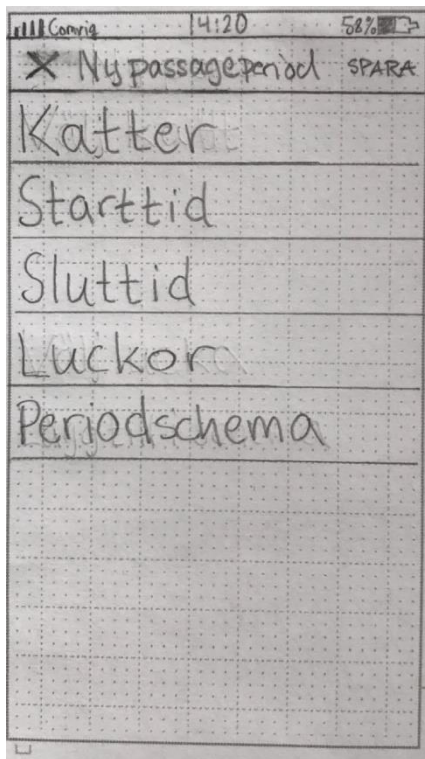 Comviq 14:20 58%
X Ny passageperiod SPARA
Katter
Starttid
Sluttid
Luckor
Periodschema